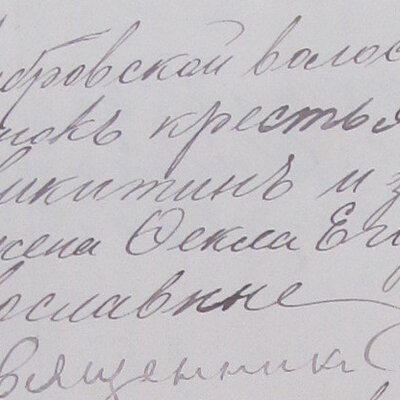 бровской волос
крестья
икитинъ и з
жена Ѳекла Ег
ославные
священник